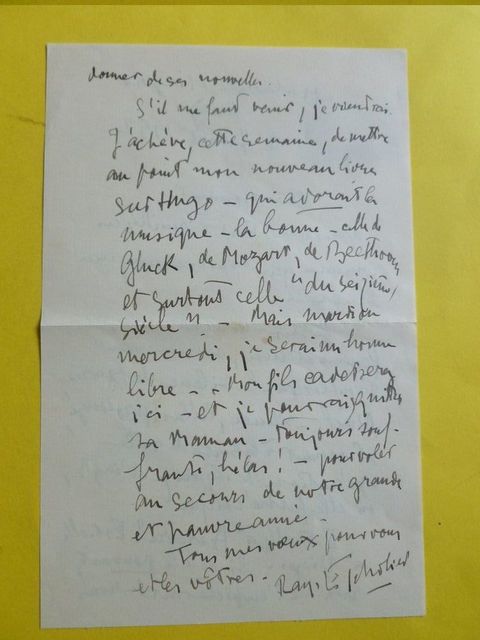 donner de ses nouvelles.
S'il me faut venir, je viendrai.
J'achève, cette semaine, de mettre
au point mon nouveau livre
sur Hugo – qui adorait la
musique – la bonne – celle de
Gluck, de Mozart, de Beethoven
et surtout celle "du seizième
siècle" – Mais mardi ou
mercredi, je serai un homme
libre – Mon fils cadet sera
ici – et je pourrai quitter
sa maman – toujours souf-
frante, hélas! – pour voler
au secours de notre grande
et pauvre amie.
Tous mes vœux pour vous
et les vôtres. Raymond Escholier